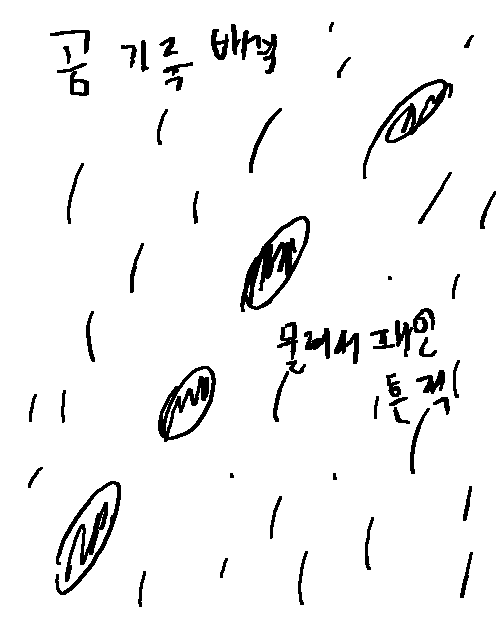 곰 가죽 배경
물려서 패인
흔적